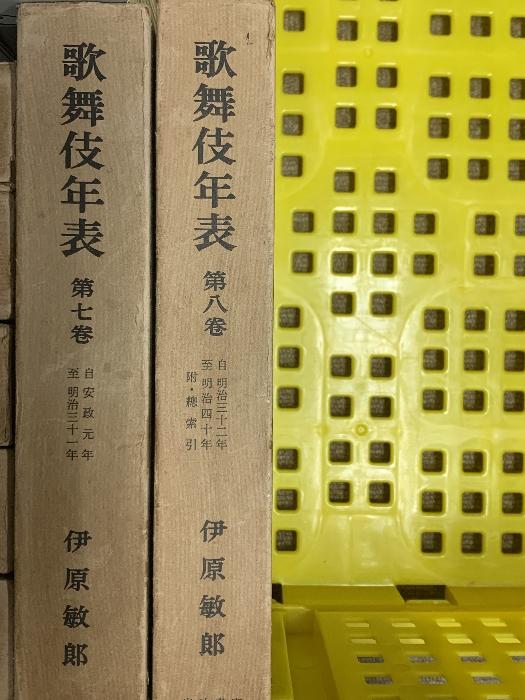 歌舞伎年表
第八卷
自明治三十二年
至明治四十年
附・總索引
伊原敏郎
歌舞伎年表
第七卷
自安政元年
至明治三十一年
伊原敏郎